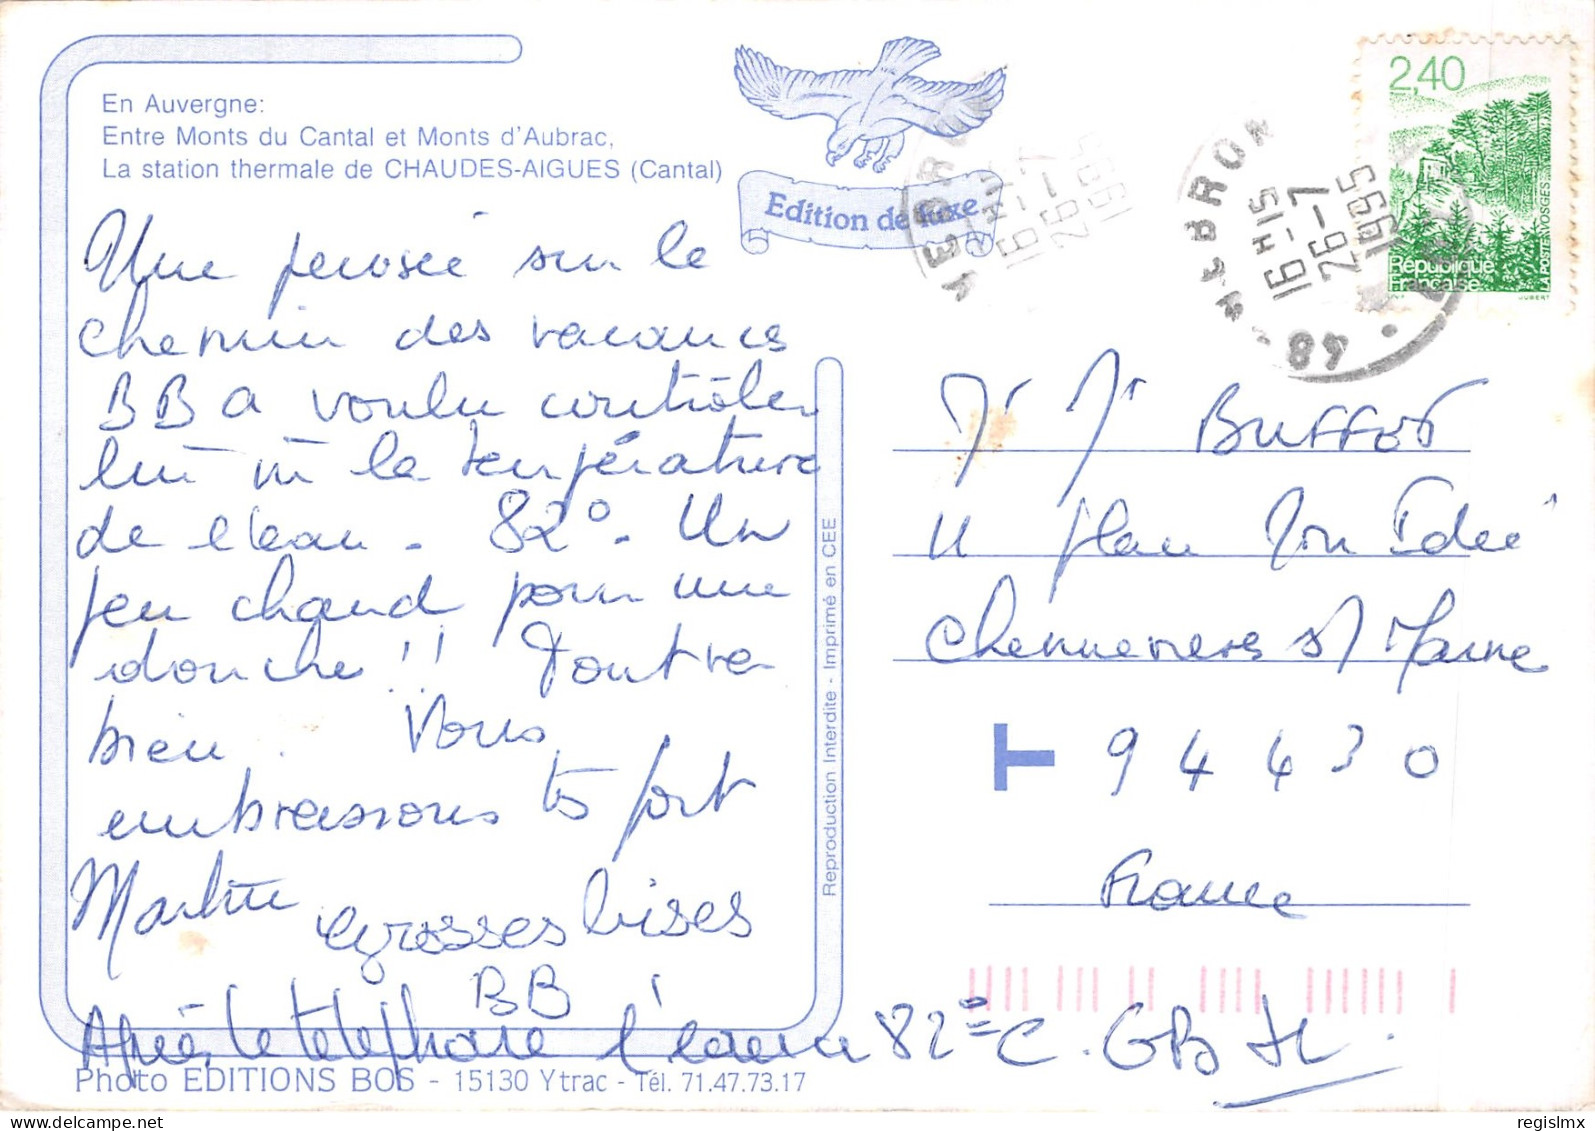 En Auvergne:
Entre Monts du Cantal et Monts d'Aubrac,
La station thermale de CHAUDES-AIGUES (Cantal)
Edition de luxe
Une pensée sur le
chemin des vacances
BB a voulu contrôler
lui m la température
de l'eau - 82° - Un
peu chaud pour une
douche !! Tout va
bien. Nous
embrassons ts fort
Martine
Grosses bises
BB
Après le téléphone l'eau a 82°C. GB
Photo EDITIONS BOS - 15130 Ytrac - Tél. 71.47.73.17
Reproduction Interdite - Imprimé en CEE
16H15
26-7
1995
48
16H15
26-7
1995
2,40
République
Française
LA POSTE
VOSGES
JUBERT
Buffet
11 plan Mon Idée
Chennevieres s/ Marne
T 94430
France
regislmx